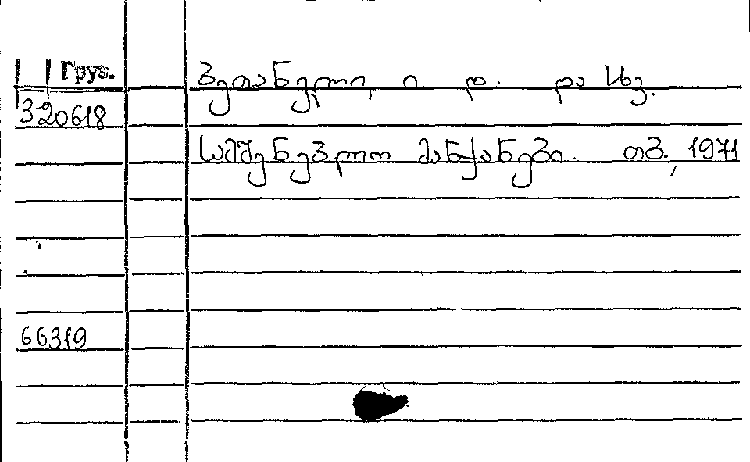 Груз.
ბეთანელი, ი. დ. და სხვ.
320618
სამშენებლო მანქანები. თბ., 1971
66319